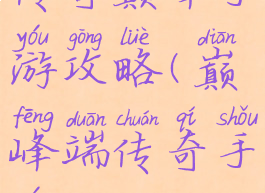 yóu gōng lüè diān
游攻略(巅
fēng duān chuán qí shǒu
峰端传奇手